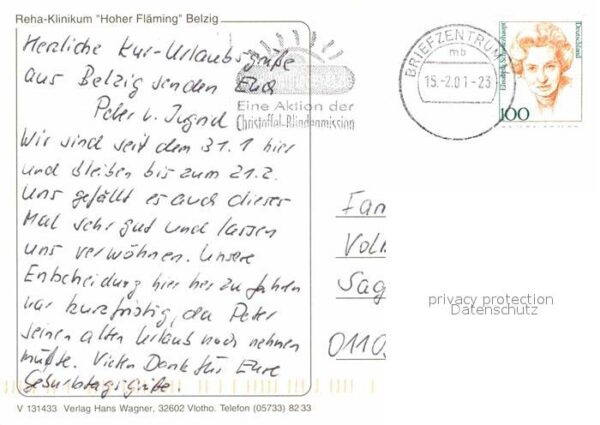 Reha-Klinikum "Hoher Fläming" Belzig
Herzliche Kur-Urlaubsgrüße
aus Belzig senden Euch
Peter u.
Wir sind seit dem 31.1 hier
und bleiben bis zum 21.2.
Uns gefällt es auch dieses
Mal sehr gut und lassen
uns verwöhnen. Unsere
Entscheidung hier her zu fahren
war kurzfristig, da Peter
seinen alten Urlaub noch nehmen
mußte. Vielen Dank für Eure
Geburtstagsgrüße.
V 131433 Verlag Hans Wagner, 32602 Vlotho. Telefon (05733) 82 33
Eine Aktion der
Christoffel-Blindenmission
BRIEFZENTRUM
mb
15.-2.01-23
Deutschland
100
Fam
Volk
Sag
0110
privacy protection
Datenschutz